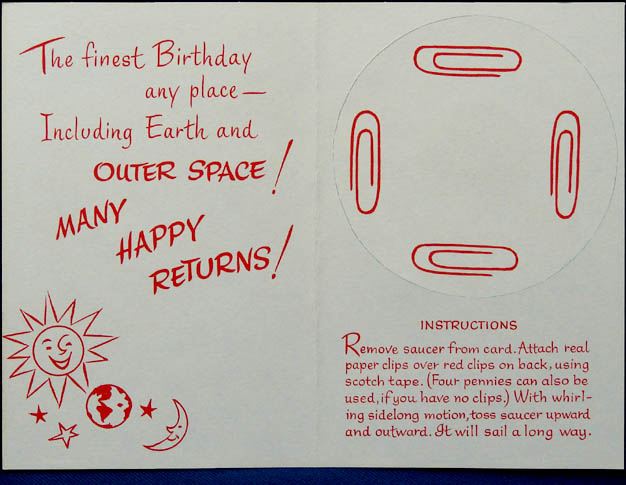 The finest Birthday
any place—
Including Earth and
OUTER SPACE!
MANY
HAPPY
RETURNS!
INSTRUCTIONS
Remove saucer from card. Attach real
paper clips over red clips on back, using
scotch tape. (Four pennies can also be
used, if you have no clips.) With whirl-
ing sidelong motion, toss saucer upward
and outward. It will sail a long way.